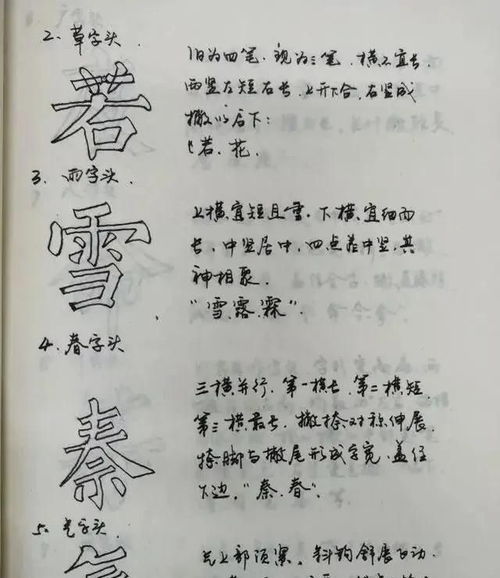 2、草字头
若
旧为四笔，现为三笔，横不宜长，
两竖左短右长，上开下合，右竖成
撇以启下：
"若、花、
3、雨字头
雪
上横宜短且重，下横宜细而
长，中竖居中，四点靠中竖，其
神相聚。
"雪.露.霖".
4、春字头
秦
三横并行，第一横长，第二横短，
第三横最长，撇捺对称伸展，
捺脚与撇尾形成字宽，盖住
下边，"秦.春"。
5、气字头
气上部顶紧，斜钩舒展飞动